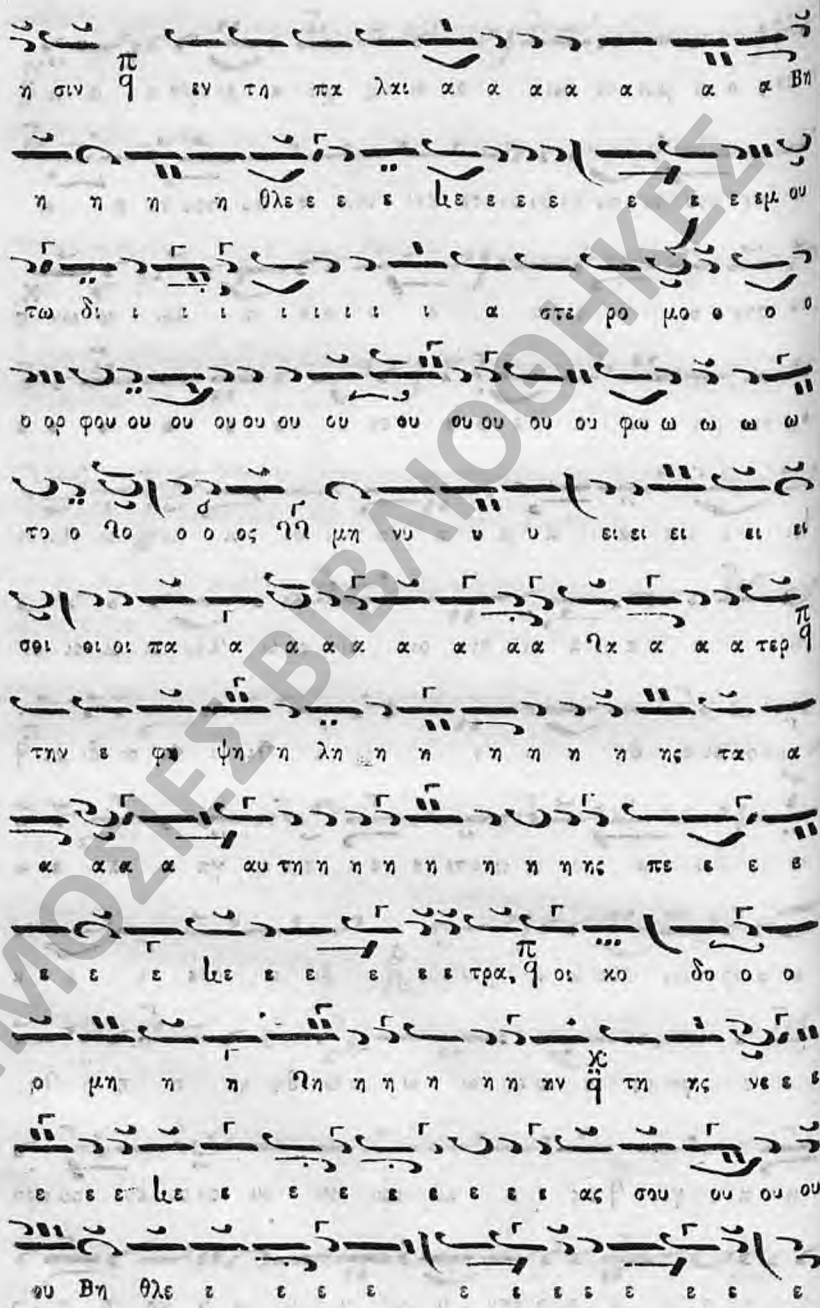 η σιν π q εν τη πα λαι α α α α α α α Βη
η η η η θλε ε ε ε λε ε ε ε ε ε ε εμ ου
τω δι ι ι ι ι ι ι ι ι α στε ρο μο ο ο ο
ο ορ φου ου ου ου ου ου ου ου ου ου ου ου φω ω ω ω ω
το ο λο ο ο ος μη νυ υ υ υ ει ει ει ει ει
σθι οι οι πα α α α α α α α α α α α τερ π q
την ε φυ ψη η λη η η η η η η ης τα α
α α α α αυ τη η η η η η η η ης πε ε ε ε
ε ε ε ε ε ε ε ε ε τρα, π q οι κο δο ο ο
ο μη η η η η η η η η ην q τη ης νε ε ε
ε ε ε ε ε ε ε ε ε ε ε ας σου ου ου ου
ου Βη θλε ε ε ε ε ε ε ε ε ε ε ε
ΔΗΜΟΣΙΕΣ ΒΙΒΛΙΟΘΗΚΕΣ